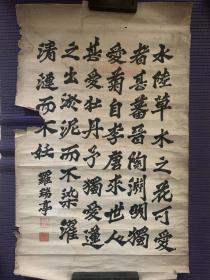 水陸草木之花可愛
者甚蕃晉陶淵明獨
愛菊自李唐來世人
甚愛牡丹予獨愛蓮
之出淤泥而不染濯
清漣而不妖 羅瑞亭